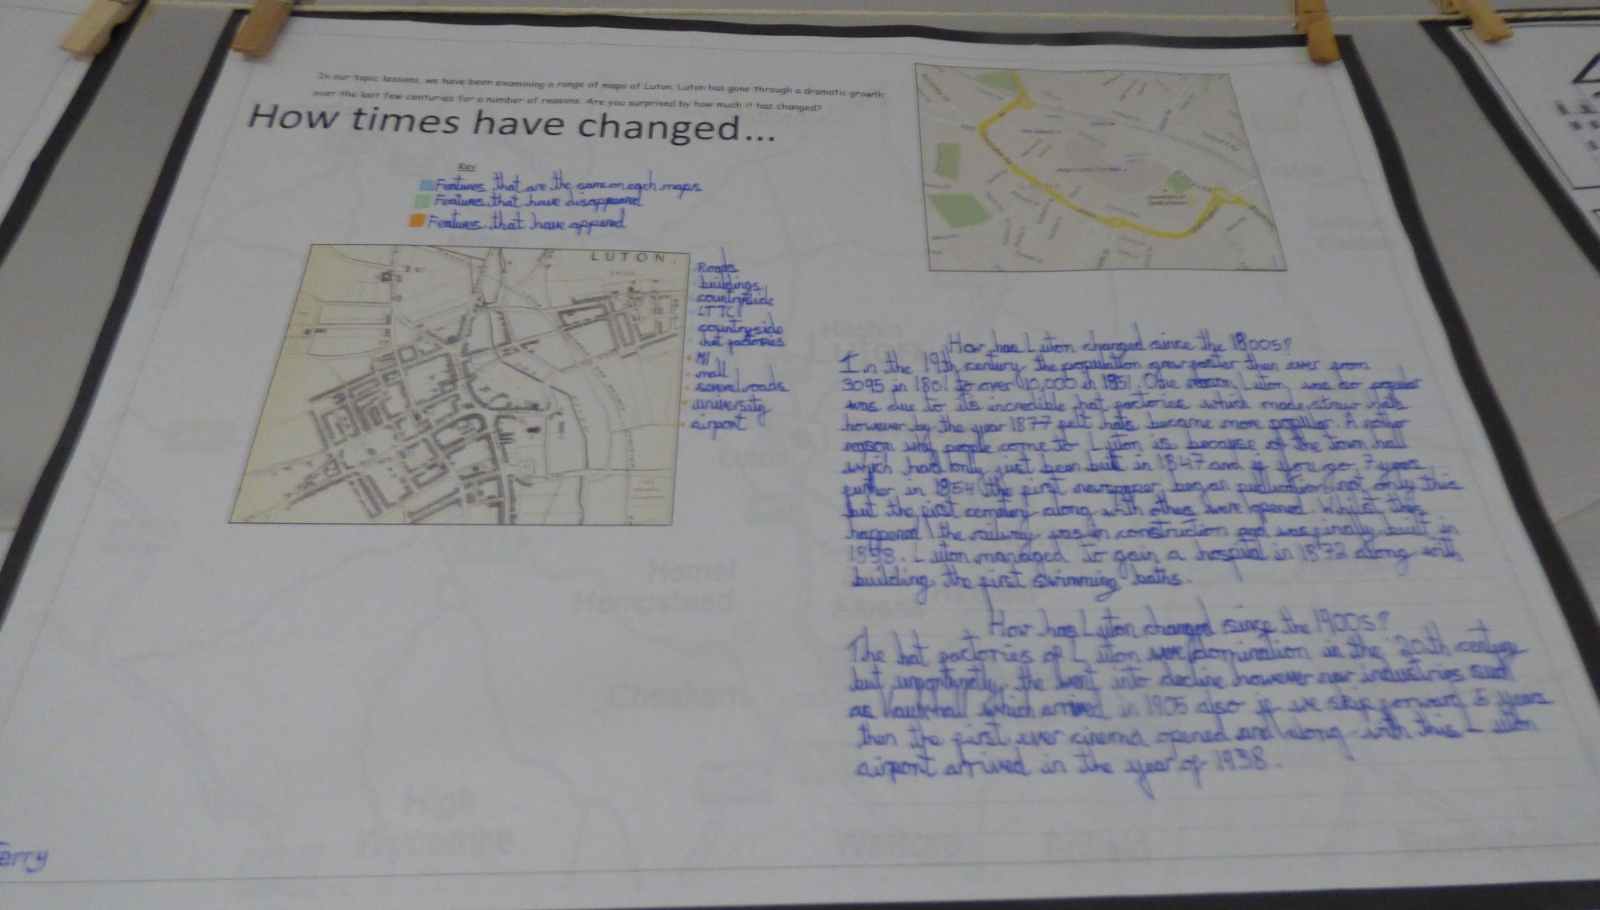 In our topic lessons, we have been examining a range of maps of Luton. Luton has gone through a dramatic growth
over the last few centuries for a number of reasons. Are you surprised by how much it has changed?
How times have changed...
Key
Features that are the same on each maps
Features that have disappeared
Features that have appered
LUTON
Roads
buildings
countryside
LTTC
countryside
hat factories
M1
mall
several roads
university
airport
How has Luton changed since the 1800s?
In the 19th century the population grew faster then ever from
3095 in 1801 to over 10,000 in 1851. One reason Luton was so popular
was due to its incredible hat factories which made straw hats
however by the year 1877 felt hats became more popular. A nother
reason why people come to Luton is because of the town hall
which had only just been built in 1847 and if you go 7 years
further in 1854 the first newspaper began publication not only this
but the first cemetery along with others were opened. Whilst this
happened the railway was in construction and was finally built in
1858. Luton managed to gain a hospital in 1872 along with
building the first swimming baths.
How has Luton changed since the 1900s?
The hat factories of Luton were domination in the 20th century
but unfortunately the went into decline however new industries such
as Vauxhall which arrived in 1905 also if we skip forward 5 years
then the first ever cinema opened and along with this Luton
airport arrived in the year of 1938.
Hitchin
Luton
Hemel
Hempstead
Chesham
High
Wycombe
Watford
Enfield
erry